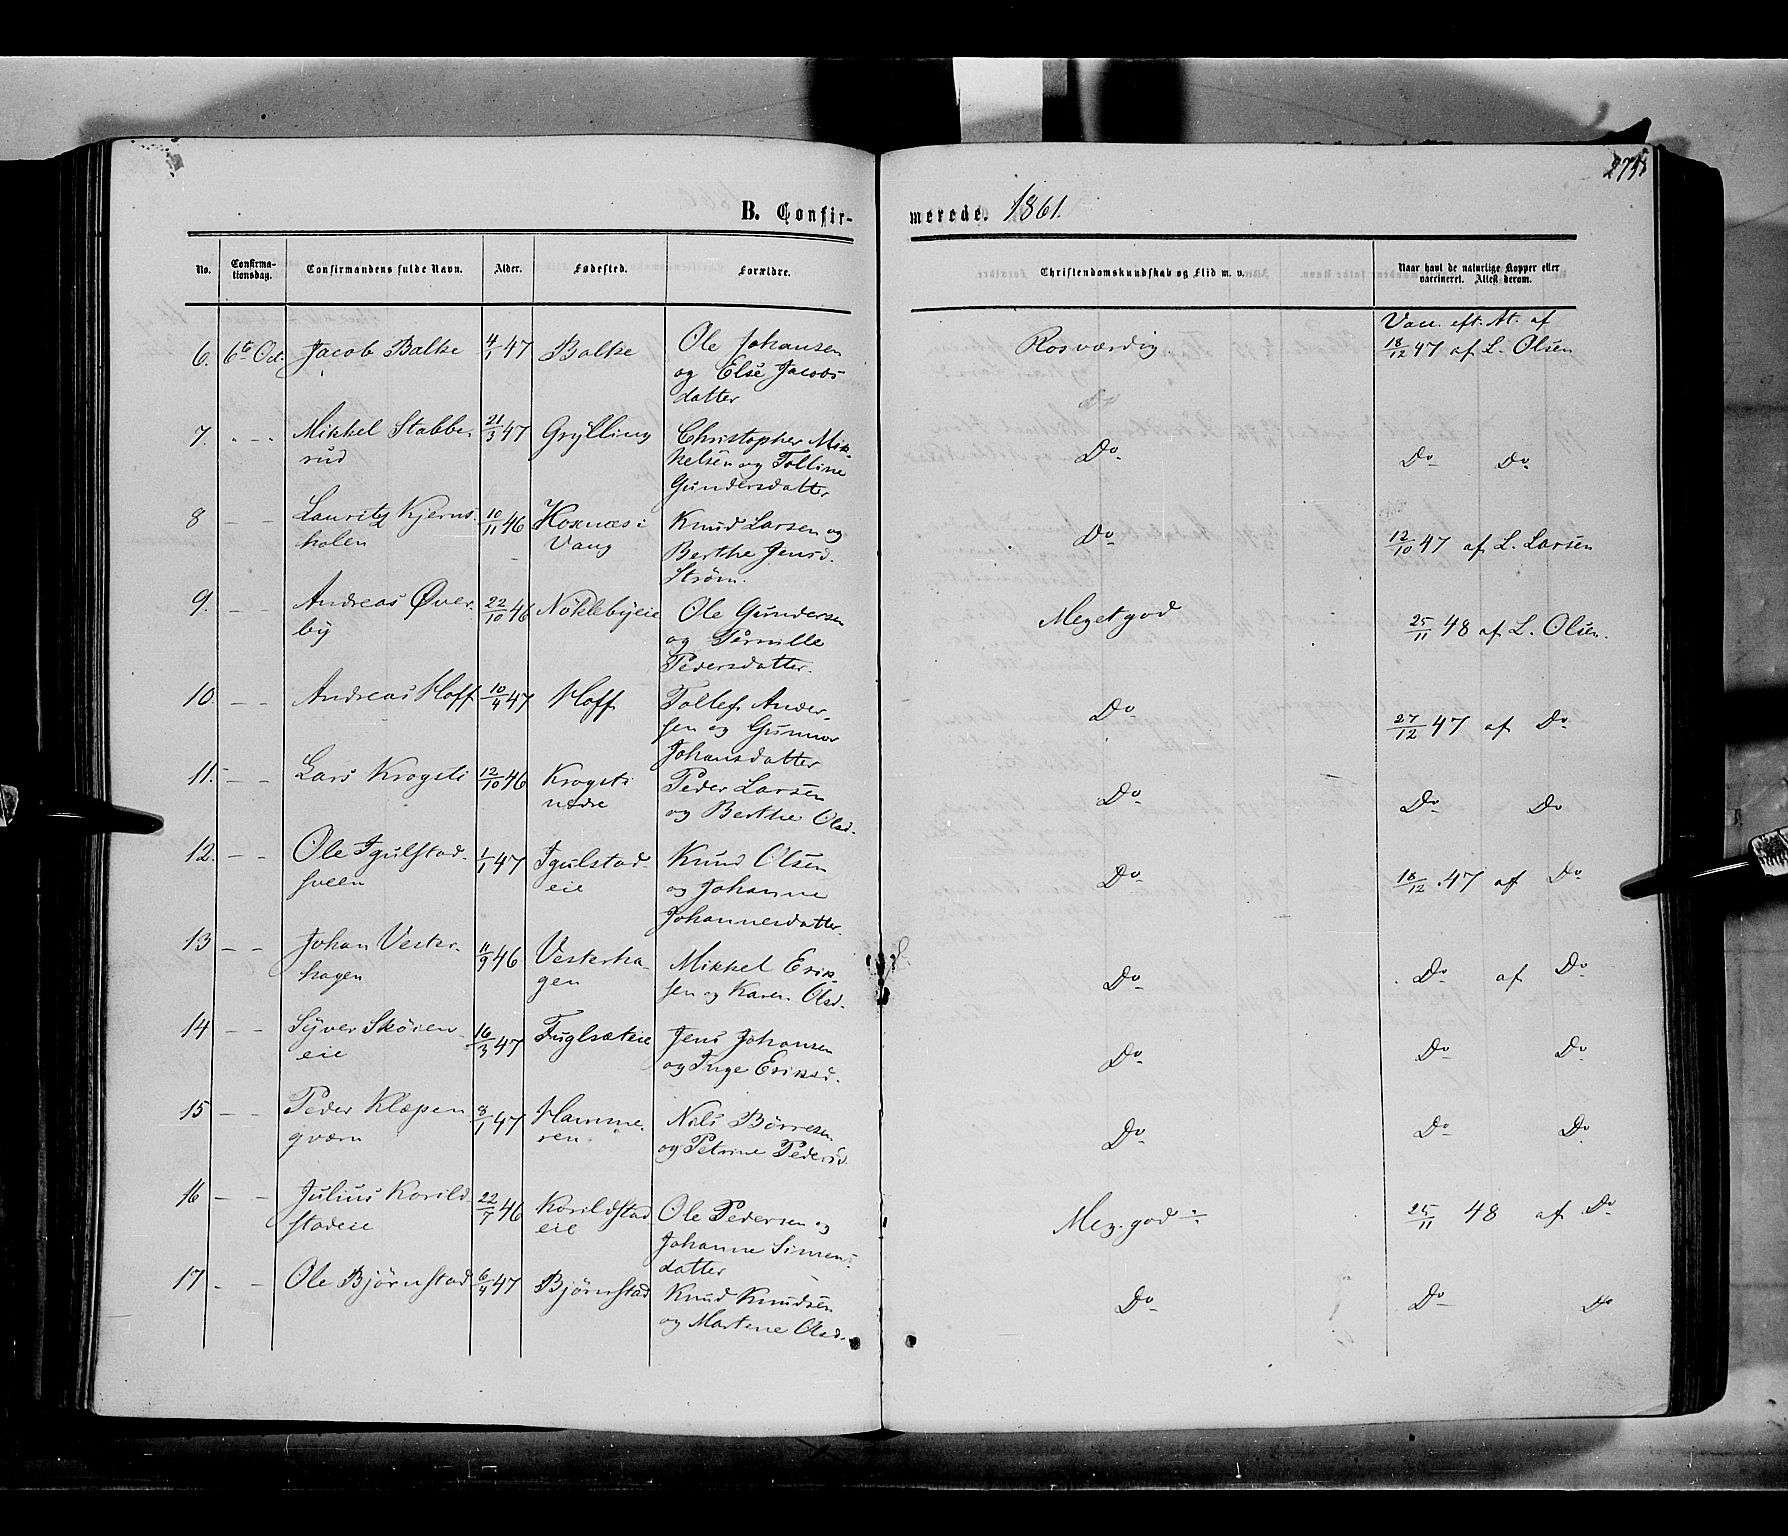 275
B. Confir-
merede. 1861.
No.
Confirma-
tionsdag.
Confirmandens fulde Navn.
Alder.
Fødested.
Forældre.
Christendomskundskab og Flid m. v.
Naar havt de naturlige Kopper eller
vaccineret. Attest derom.
6. 6te Oct. Jacob Balke 4/1 47 Balke Ole Johansen
og Else Jacobs
datter
Rosværdig.
Vacc. eft. At. af
18/12 47 af L. Olsen
7. - - Mikkel Stabbe-
rud
21/3 47 Grylling Christopher Mik-
kelsen og Tolline
Gundersdatter
Do
Do Do
8 - - Lauritz Kjerns-
holen
10/11 46 Hoxnæs i
Vang
Knud Larsen og
Berthe Jensd.
Strøm.
Do
12/10 47 af L. Larsen
9. - - Andreas Øver-
by
22/10 46 Nöklebyeie Ole Gundersen
og Pernille
Pedersdatter.
Meget god
25/11 48 af L. Olsen.
10. - - Andreas Hoff 10/4 47 Hoff Tollef Ander-
sen og Gunnor
Johansdatter
Do
27/12 47 af Do
11. - - Lars Krogsti 12/10 46 Krogsti
nedre
Peder Larsen
og Berthe Olsd.
Do
Do Do
12. - - Ole Igulstad-
sveen
1/1 47 Igulstad-
eie
Knud Olsen
og Johanne
Johannesdatter.
Do
18/12 47 af Do
13 - - Johan Vester-
hagen
11/9 46 Vesterha-
gen
Mikkel Erik-
sen og Karen Olsd.
Do
Do af Do
14 - - Syver Skoien-
eie
16/3 47 Fuglsæteie Jens Johansen
og Inge Eriksd.
Do
Do Do
15 - - Peder Klæpen
qværn
8/1 47 Hamme-
ren
Nils Börresen
og Petrine Pedersd.
Do
Do Do
16 - - Julius Korild-
stadeie
22/7 46 Korildstad
eie
Ole Pedersen og
Johanne Simens-
datter
Meg. god ÷
25/11 48 af Do
17 - - Ole Bjørnstad 6/4 47 Bjørnstad Knud Knudsen
og Martine Olsd.
Do
Do Do